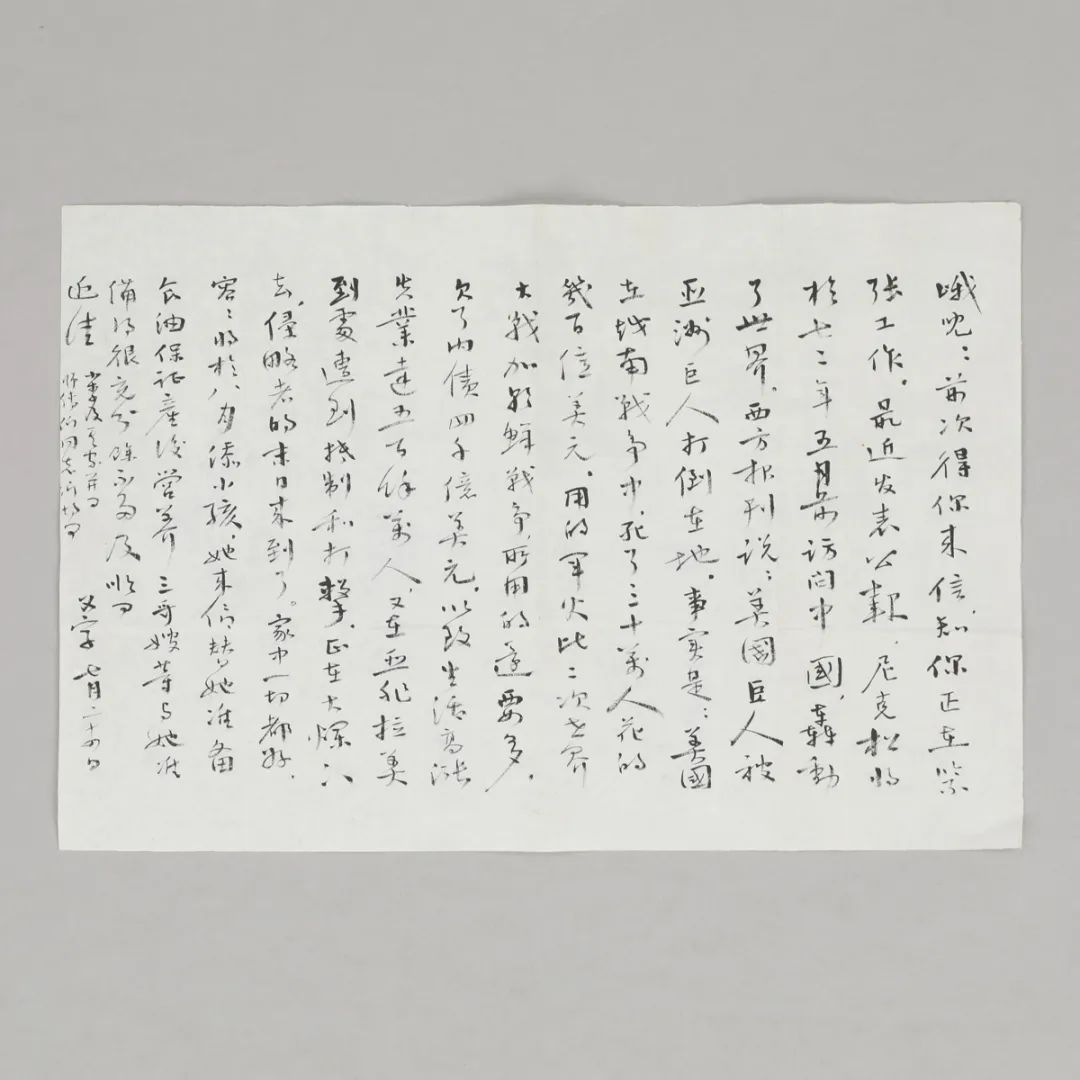 峨児：前次得你来信，知你正在紧
张工作。最近发表公報，尼克松将
於七二年五月前訪问中國，轟動
了世界，西方报刊说：美國巨人被
亚洲巨人打倒在地。事实是：美國
在越南戰争中，死了三十萬人花的
幾百億美元。用的军火比二次世界
大戰加朝鲜戰争所用的還要多，
欠了内债四千億美元，以致生活高漲
失業達五百余萬人，又在亚非拉美
到處遭到抵制和打擊，正在大爛下
去，侵略者的末日来到了。家中一切都好，
容容将於八月添小孩，她来信替她准备
食油保证産後营养三哥嫂等与她准
備得很充分 及 順问
近佳
父字 七月二十四日